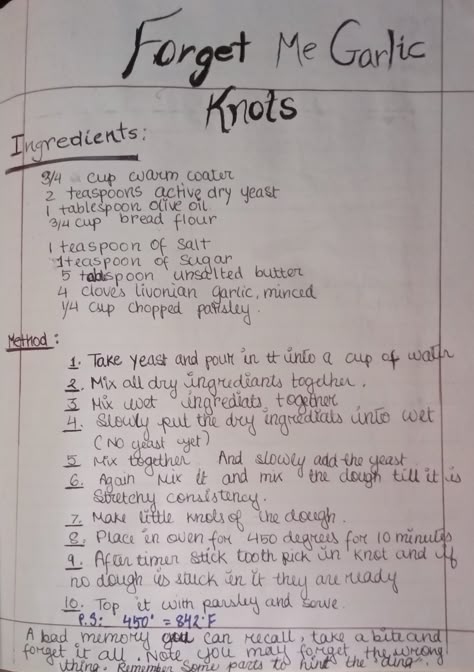 Forget Me Garlic
Knots
Ingredients:
3/4 cup warm water
2 teaspoons active dry yeast
1 tablespoon olive oil
3/4 cup bread flour
1 teaspoon of salt
1 teaspoon of sugar
5 tablespoon unsalted butter
4 cloves livonian garlic, minced
1/4 cup chopped parsley.
Method:
1. Take yeast and pour in it into a cup of water
2. Mix all dry ingrediants together.
3 Mix wet ingrediats together
4. Slowly put the dry ingredials into wet
(No yeast yet)
5 Mix together. And slowly add the yeast
6. Again mix it and mix the dough till it is
stretchy consistency.
7. Make little knots of the dough.
8. Place in oven for 450 degrees for 10 minutes
9. After timer stick tooth pick in knot and if
no dough is stuck in it they are ready
10. Top it with parsley and serve.
P.S: 450° = 842°F
A bad memory you can recall, take a bite and
forget it all. Note you may forget the wrong
thing. Remember some parts to hint the